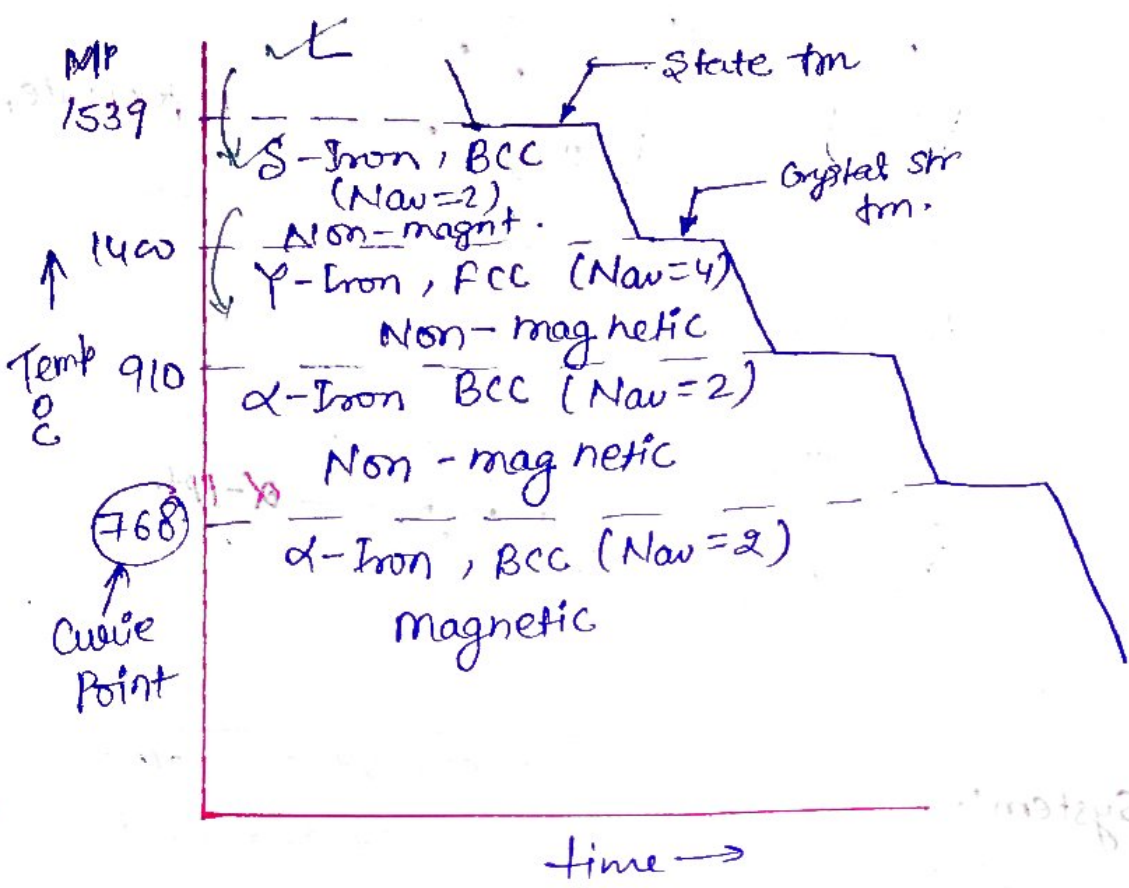 MP
1539
State tm
δ-Iron, BCC
(Nav=2)
Non-magnt.
Crystal str
tm.
1400
γ-Iron, FCC (Nav=4)
Non-magnetic
Temp
°C
910
α-Iron BCC (Nav=2)
Non-magnetic
768
α-Iron, BCC (Nav=2)
Magnetic
Curie
Point
time →